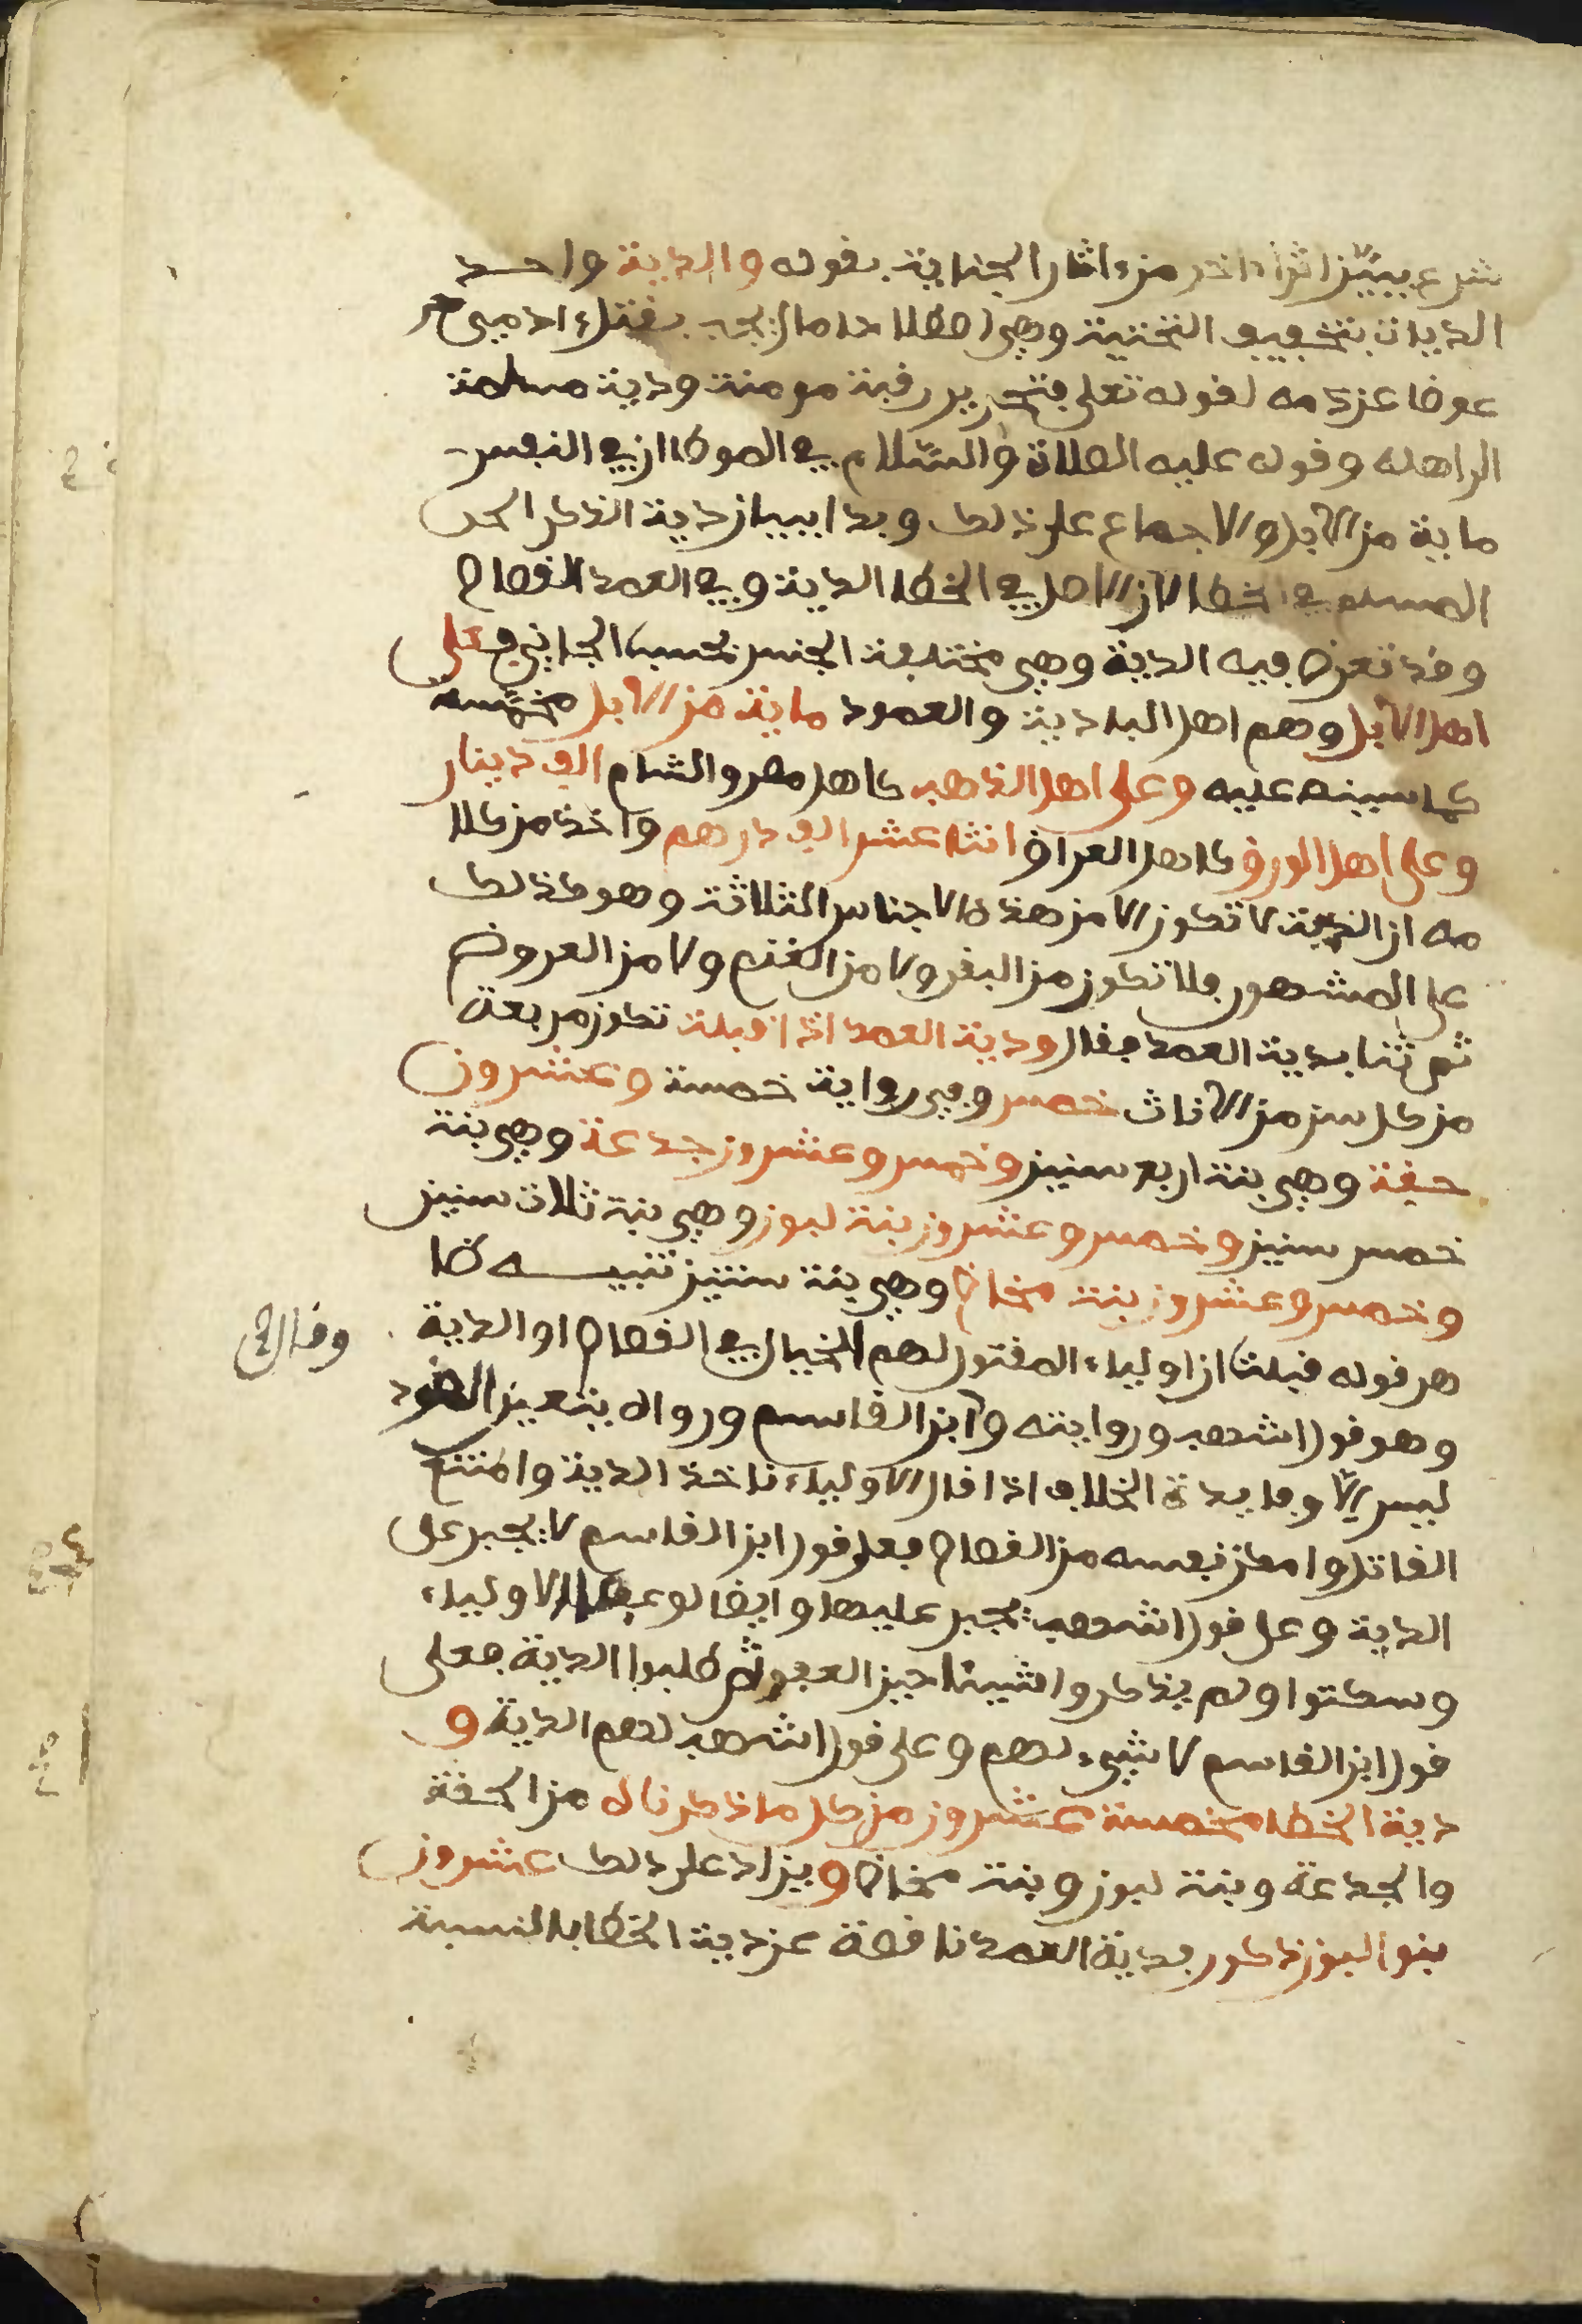 شرع يبين اثرا اخر من ءاثار الجناية بقوله والدية واحد
الديات بتخفيف التحتية وهي اصطلاحا مال يجب بقتل ءادمي حر
عوضا عن دمه لقوله تعلى فتحرير رقبة مومنة ودية مسلمة
الى اهله وقوله عليه الصلاة والسلام في الموطا ان في النفس
ماية من الابل والاجماع على ذلك وبدا ببيان دية الذكر الحر
المسلم في الخطا لان الاصل في الخطا الدية وفي العمد القصاص
وقد تعرض فيه الدية وهي مختلفة الجنس بحسب الجاني فعلى
اهل الابل وهم اهل البادية والعمود ماية من الابل مخمسة
كما سيبنه عليه وعلى اهل الذهب كاهل مصر والشام الف دينار
وعلى اهل الورق كاهل العراق اثنا عشر الف درهم واخذ من كلا
مه ان الدية لا تكون الا من هذه الاجناس الثلاثة وهو كذلك
على المشهور فلا تكون من البقر ولا من الغنم ولا من العروض
ثم ثنا بدية العمد فقال ودية العمد اذا قبلت تكون مربعة
من كل سن من الاناث خمس وفي رواية خمسة وعشرون
حقة وهي بنت اربع سنين وخمس وعشرون جدعة وهي بنت
خمس سنين وخمس وعشرون بنت لبون وهي بنت ثلاث سنين
وخمس وعشرون بنت مخاض وهي بنت سنتين تنبيه ظا
هر قوله قبلت ان اولياء المقتول لهم الخيار في القصاص او الدية وقال
وهو قول اشهب وروايته وابن القاسم ورواه بتعين القود
ليس الا وفايدة الخلاف اذا قال الاولياء ناخذ الدية وامتنع
القاتل وامكن نفسه من القصاص فعلى قول ابن القاسم لا يجبر على
الدية وعلى قول اشهب يجبر عليها وايضا لو عفى الاولياء
وسكتوا ولم يذكروا شيئا حين العفو ثم طلبوا الدية فعلى
قول ابن القاسم لا شيء لهم وعلى قول اشهب لهم الدية و
دية الخطا مخمسة عشرون من كل ما ذكرناه من الحقة
والجدعة وبنت لبون وبنت مخاض ويزاد على ذلك عشرون
بنو البون ذكور فدية العمد ناقصة عن دية الخطا بالنسبة